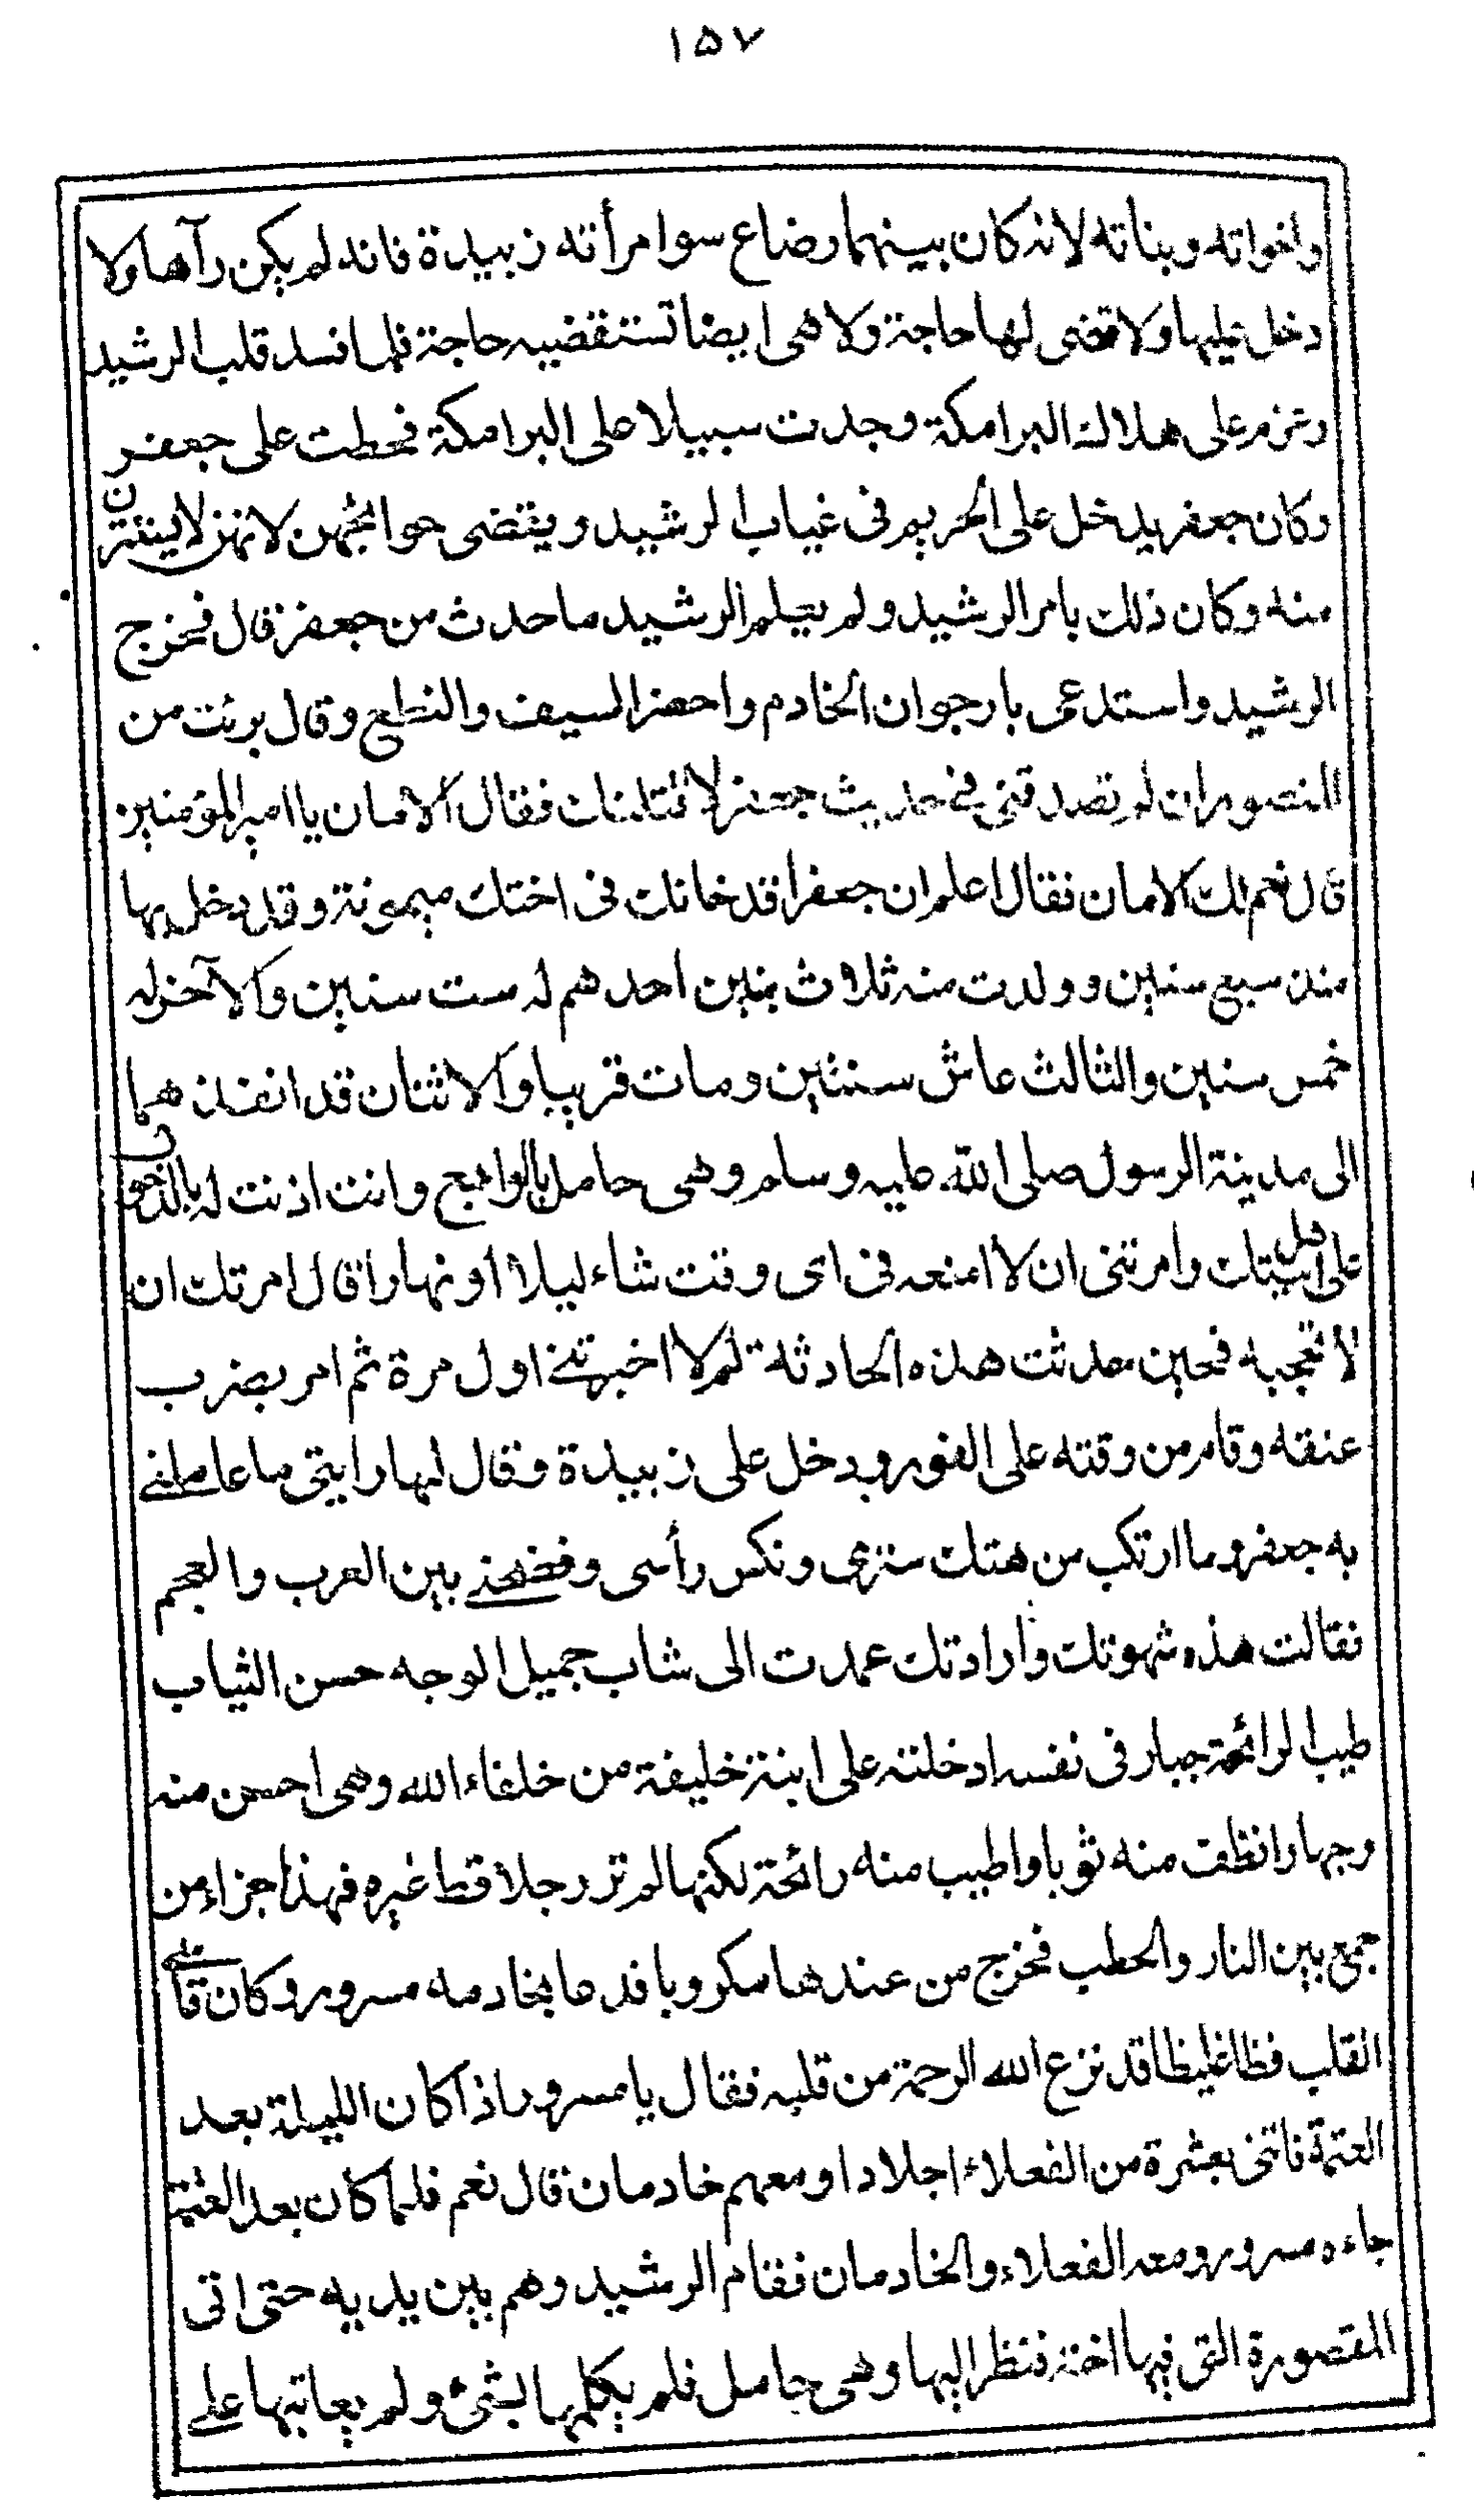 ١٥٧
واخواته وبناته لانه كان بينهما رضاع سوا مرأته زبيدة فانه لم يكن رآها ولا
دخل عليها ولا قضى لها حاجة ولا هى ايضا تستقضيه حاجة فلما فسد قلب الرشيد
وعزم على هلاك البرامكة وجدت سبيلا على البرامكة فحطت على جعفر
وكان جعفر يدخل على الحريم فى غياب الرشيد ويقضى حوائجهن لانهن لا يستترن
منه وكان ذلك بامر الرشيد ولم يعلم الرشيد ما حدث من جعفر قال فخرج
الرشيد واستدعى بارجوان الخادم واحضر السيف والنطع وقال برئت من
المنصور ان لم تصدقنى فى حديث جعفر لاقتلنك فقال الامان يا امير المؤمنين
قال نعم لك الامان فقال اعلم ان جعفرا قد خانك فى اختك ميمونة وقد دخل بها
منذ سبع سنين وولدت منه ثلاث بنين احدهم له ست سنين والآخر له
خمس سنين والثالث عاش سنتين ومات قريبا والاثنان قد انفذهما
الى مدينة الرسول صلى الله عليه وسلم وهى حامل بالرابع وانت اذنت له بالدخول
على اهل بيتك وامرتنى ان لا امنعه فى اى وقت شاء ليلا او نهارا قال امرتك ان
لا تحجبه فحين حدثت هذه الحادثة لم لا اخبرتنى اول مرة ثم امر بضرب
عنقه وقام من وقته على الفور ودخل على زبيدة وقال لها رايتى ما عاملنى
به جعفر وما ارتكب من هتك سترى ونكس رأسى وفضحنى بين العرب والعجم
فقالت هذه شهوتك وارادتك عمدت الى شاب جميل الوجه حسن الثياب
طيب الرائحة جبار فى نفسه ادخلته على ابنة خليفة من خلفاء الله وهى احسن منه
وجها وانظف منه ثوبا واطيب منه رائحة لكنها لم تر رجلا قط غيره فهذا جزاء من
جمع بين النار والحطب فخرج من عندها مكروبا فدعا بخادمه مسرور وكان قاسى
القلب فظا غليظا قد نزع الله الرحمة من قلبه فقال يا مسرور اذا كان الليلة بعد
العتمة فاتنى بعشرة من الفعلاء اجلادا ومعهم خادمان قال نعم فلما كان بعد العتمة
جاءه مسرور ومعه الفعلاء والخادمان فقام الرشيد وهم بين يديه حتى اتى
المقصورة التى فيها اخته فنظر اليها وهى حامل فلم يكلمها بشئ ولم يعاتبها على